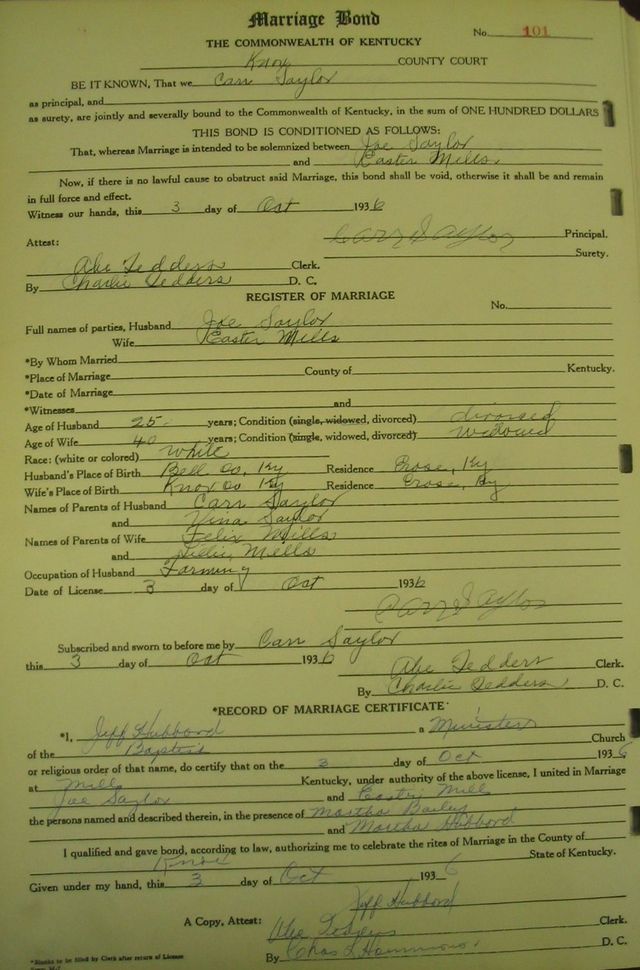 Marriage Bond
No. 101
THE COMMONWEALTH OF KENTUCKY
Knox COUNTY COURT
BE IT KNOWN, That we Carr Saylor
as principal, and
as surety, are jointly and severally bound to the Commonwealth of Kentucky, in the sum of ONE HUNDRED DOLLARS
THIS BOND IS CONDITIONED AS FOLLOWS:
That, whereas Marriage is intended to be solemnized between Joe Saylor
and Easter Mills
Now, if there is no lawful cause to obstruct said Marriage, this bond shall be void, otherwise it shall be and remain
in full force and effect.
Witness our hands, this 3 day of Oct 1936
Carr Saylor Principal.
Attest:
Surety.
Abe Tedders Clerk.
By Charlie Tedders D. C.
REGISTER OF MARRIAGE
No.
Full names of parties, Husband Joe Saylor
Wife Easter Mills
*By Whom Married
*Place of Marriage County of Kentucky.
*Date of Marriage
*Witnesses and
Age of Husband 25 years; Condition (single, widowed, divorced) divorced
Age of Wife 40 years; Condition (single, widowed, divorced) widowed
Race: (white or colored) White
Husband's Place of Birth Bell Co, Ky Residence Crose, Ky
Wife's Place of Birth Knox Co Ky Residence Crose, Ky
Names of Parents of Husband Carr Saylor
and Vina Saylor
Names of Parents of Wife Felix Mills
and Mills
Occupation of Husband Farming
Date of License 3 day of Oct 1936
Carr Saylor
Subscribed and sworn to before me by Carr Saylor
this 3 day of Oct 1936
Abe Tedders Clerk.
By Charlie Tedders D. C.
*RECORD OF MARRIAGE CERTIFICATE
*I, Jeff Hubbord a Minister
of the Baptist Church
or religious order of that name, do certify that on the 3 day of Oct 1936
at Mills Kentucky, under authority of the above license, I united in Marriage
Joe Saylor and Mill
the persons named and described therein, in the presence of Martha Bailey
and Martha Hubbord
I qualified and gave bond, according to law, authorizing me to celebrate the rites of Marriage in the County of
Knox State of Kentucky.
Given under my hand, this 3 day of Oct 1936
Jeff Hubbord
A Copy, Attest: Abe Tedders Clerk.
By Chas D. C.
*Blanks to be filled by Clerk after return of License